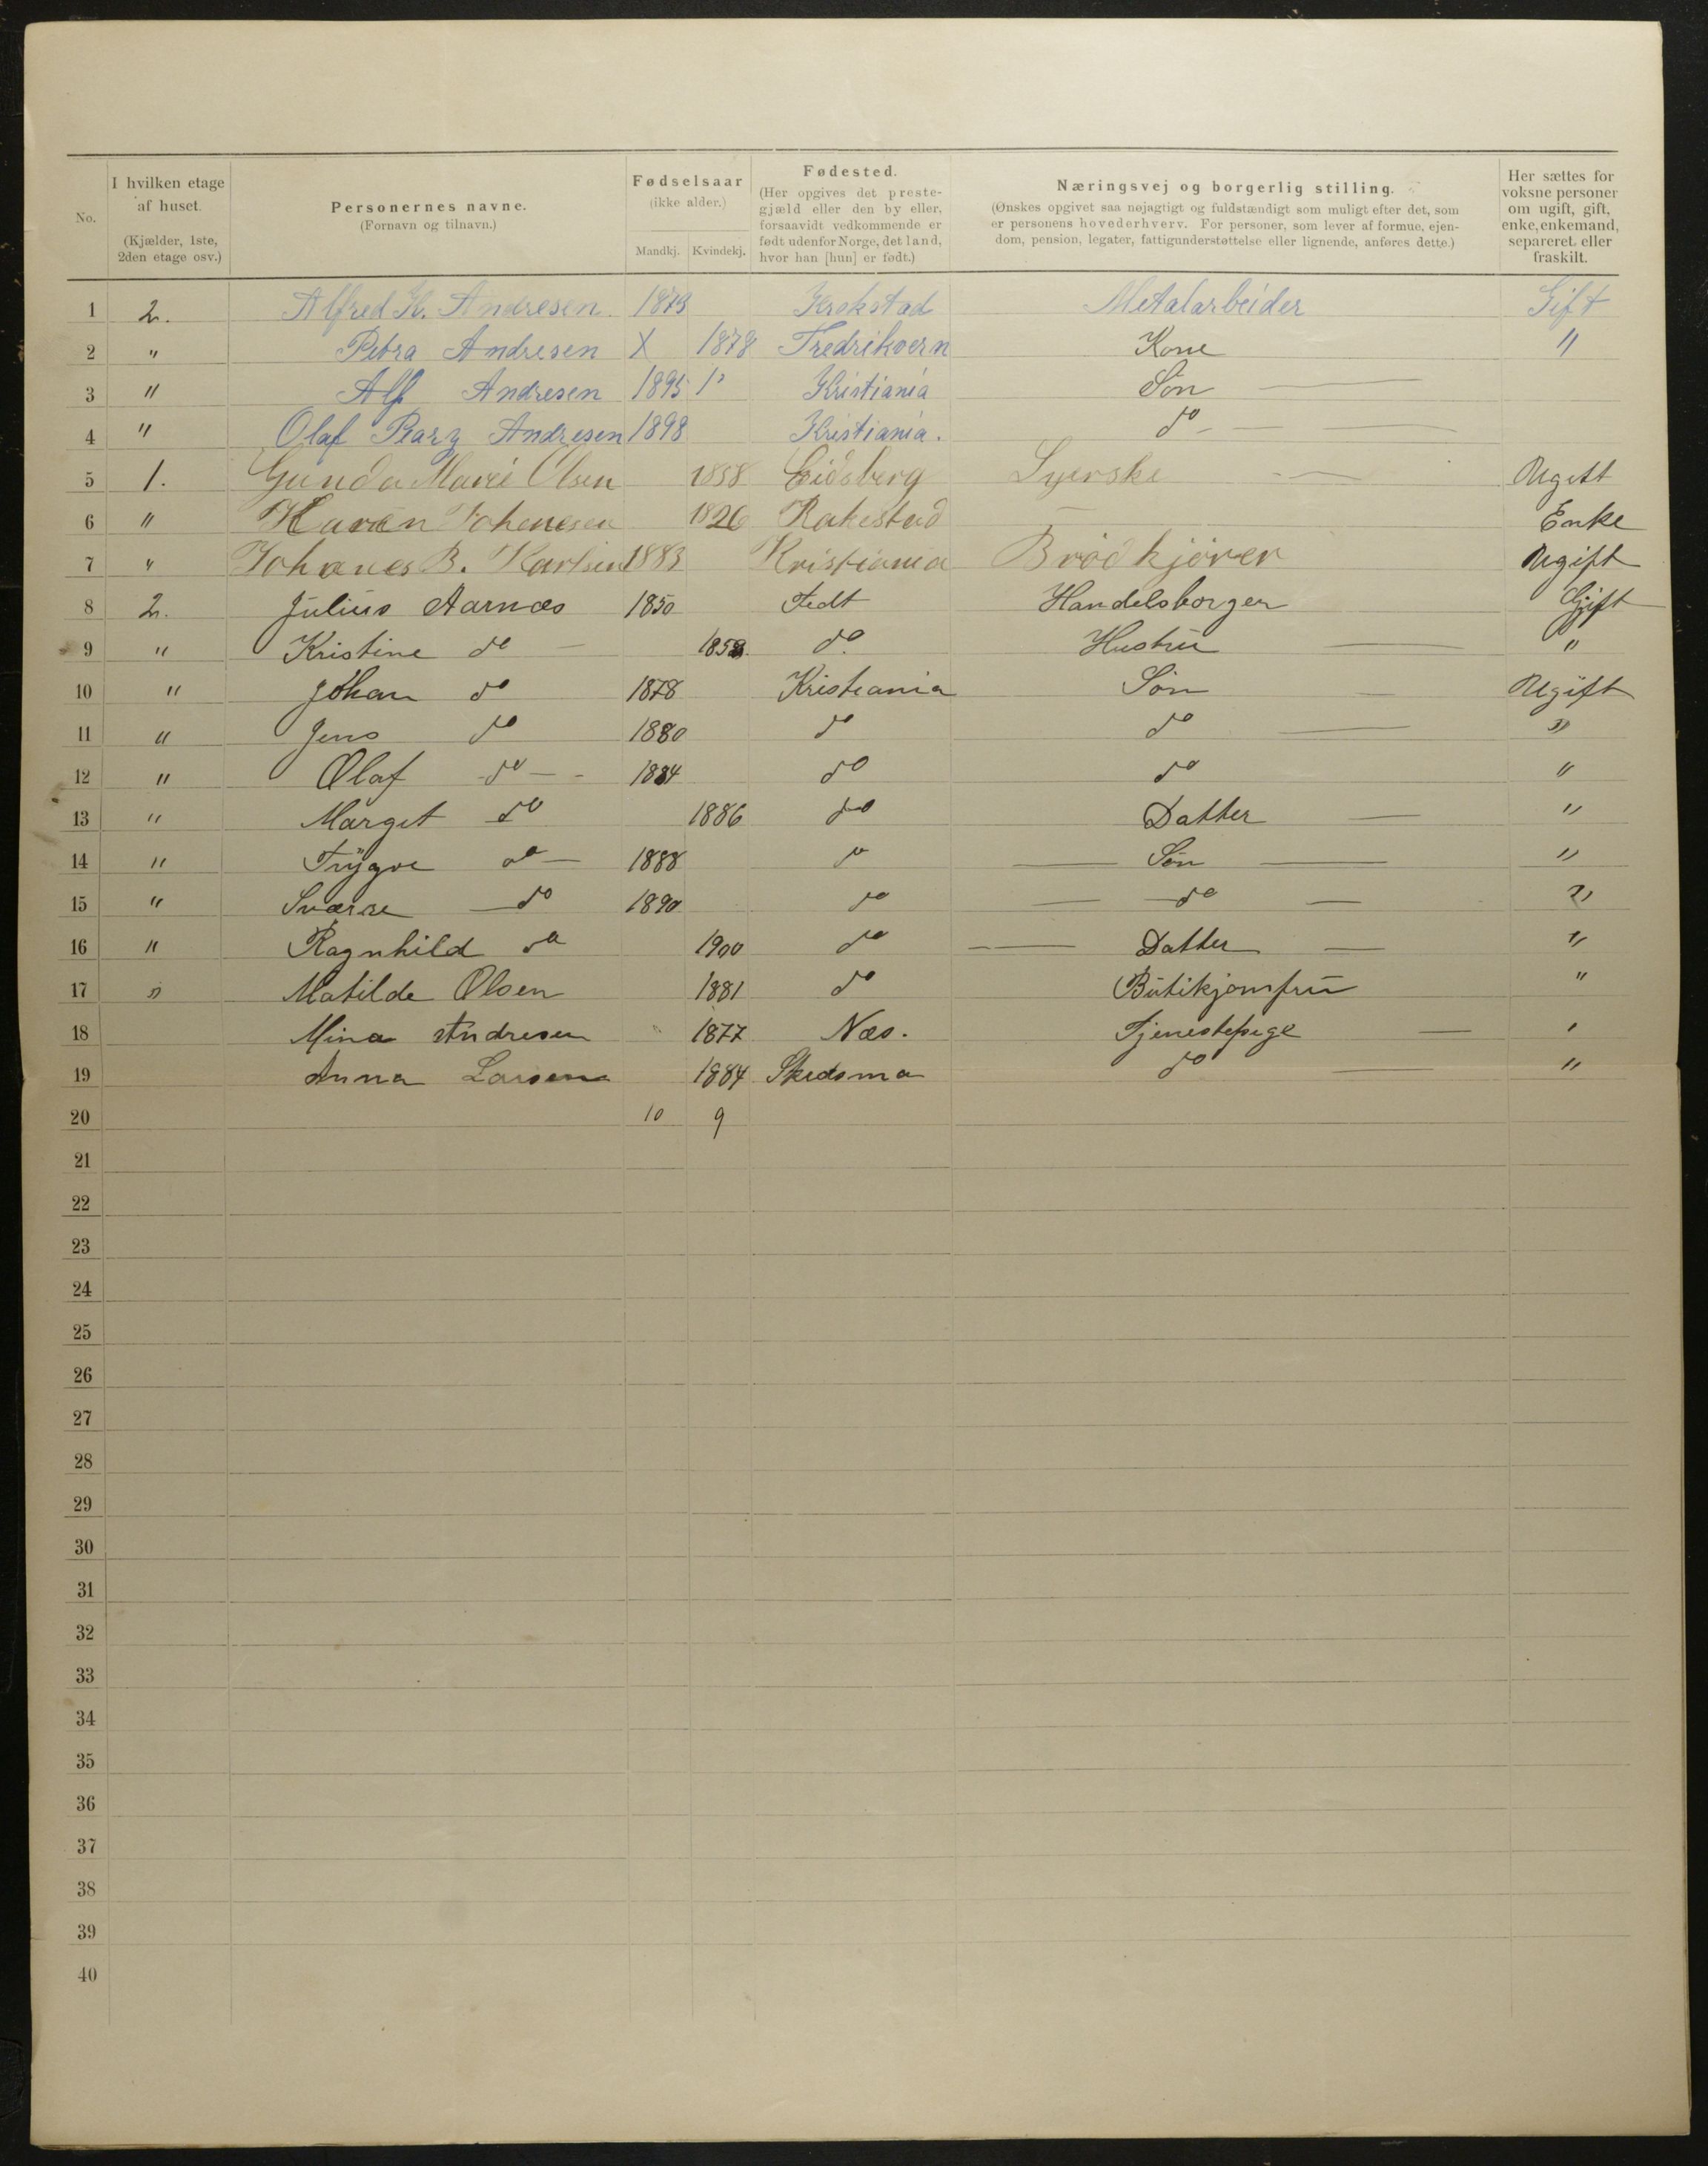 No. | I hvilken etage af huset. (Kjælder, 1ste, 2den etage osv.) | Personernes navne. (Fornavn og tilnavn.) | Fødselsaar (ikke alder.) Mandkj. | Kvindekj. | Fødested. (Her opgives det prestegjæld eller den by eller, forsaavidt vedkommende er født udenfor Norge, det land, hvor han [hun] er født.) | Næringsvej og borgerlig stilling. (Ønskes opgivet saa nøjagtigt og fuldstændigt som muligt efter det, som er personens hovederhverv. For personer, som lever af formue, ejendom, pension, legater, fattigunderstøttelse eller lignende, anføres dette.) | Her sættes for voksne personer om ugift, gift, enke, enkemand, separeret eller fraskilt.
1 2. Alfred H. Andresen 1873 Krokstad Metalarbeider Gift
2 " Petra Andresen X 1878 Fredriksvern Kone "
3 " Alf Andresen 1895 Kristiania Søn
4 " Olaf Andresen 1898 Kristiania. do
5 1. Gunda Marie Olsen 1858 Eidsberg Syerske Ugift
6 " Karen Johanesen 1826 Rakestad — Enke
7 " Johanes B. Karlsen 1883 Kristiania Brødkjører Ugift
8 2. Julius Aarnæs 1850 Fedt Handelsborger Gift
9 " Kristine do 1858 do. Hustru "
10 " Johan do 1878 Kristiania Søn Ugift
11 " Jens do 1880 do do "
12 " Olaf do 1884 do do "
13 " Marget do 1886 do Datter "
14 " Trygve do 1888 do Søn "
15 " Sværre do 1890 do do "
16 " Ragnhild do 1900 do Datter "
17 " Matilde Olsen 1881 do Butikjomfru "
18 Mina Andresen 1877 Næs. Tjenestepige "
19 Anna Larsen 1884 Skedsmo do "
20 10 9
21
22
23
24
25
26
27
28
29
30
31
32
33
34
35
36
37
38
39
40